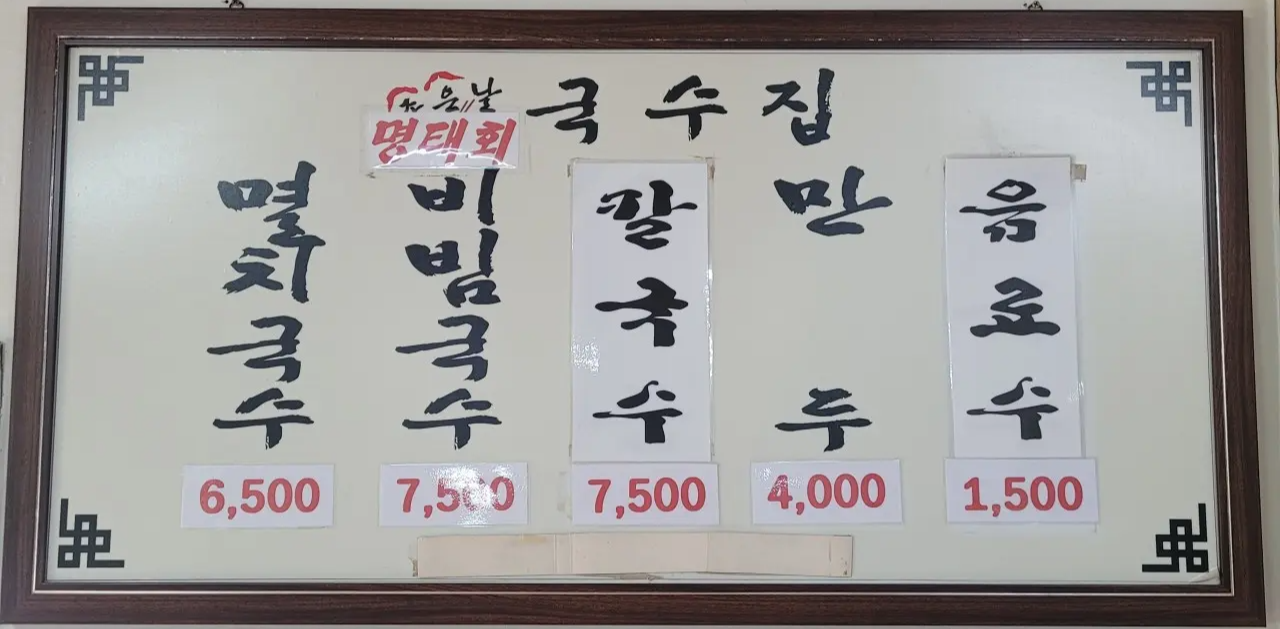 은날 국수집
멸치국수
6,500
명태회
비빔국수
7,500
칼국수
7,500
만두
4,000
음료수
1,500